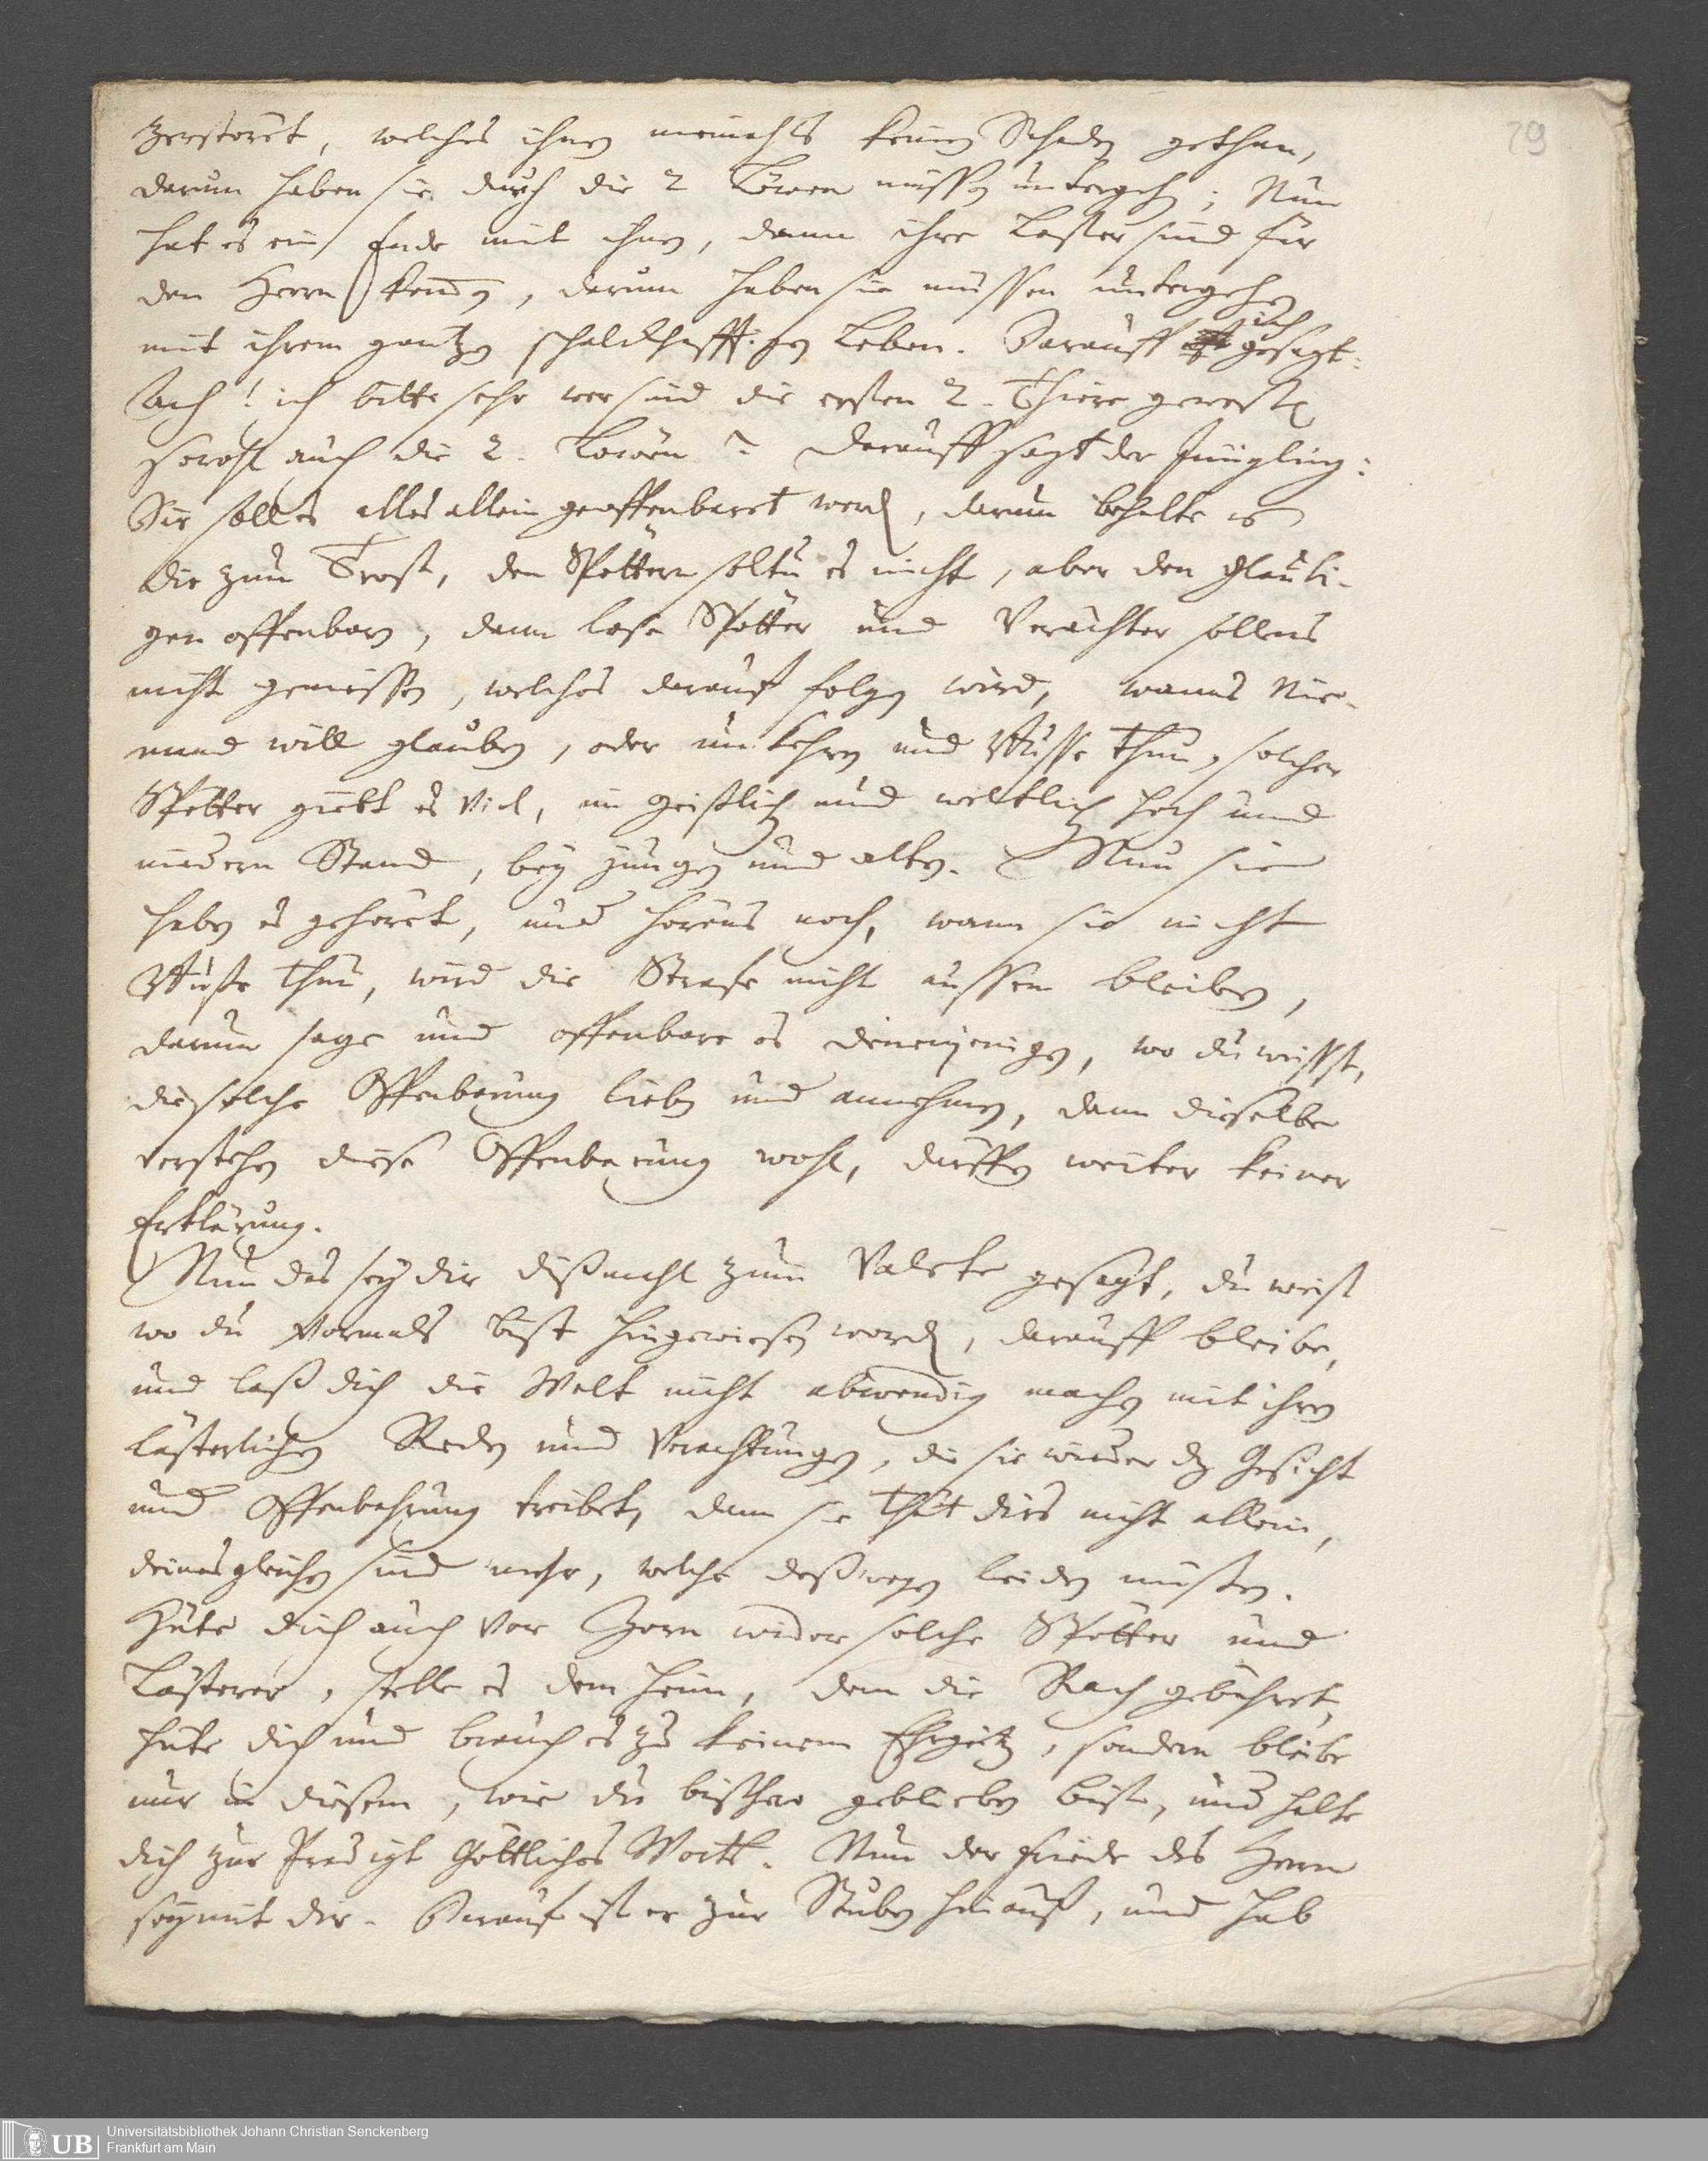 29
zerstöret, welches ihnen niemahls keinen Schaden gethan,
darum haben sie durch die 2 Löwen müssen untergehen; Nun
hat es ein Ende mit ihnen, dann ihre Laster sind für
den Herrn kommen, darum haben sie müssen untergehen
mit ihrem gantzen schalckhafftigen Leben. Darauff ich gesagt:
ach! ich bitte sehr wer sind die ersten 2. Thiere gewest
sowohl auch die 2. Löwen? Darauff sagt der Jüngling:
Dir soll es alles allein geoffenbaret werden, darum behalte es
dir zum Trost, den Spöttern soltu es nicht, aber den Glaubi-
gen offenbaren, dann lose Spötter und Verächter sollens
nicht geniessen, welches darauf folgen wird, wanns Nie-
mand will glauben, oder umkehren und Busse thun, solcher
Spötter giebt es viel, im geistlich und weltlich hoch und
niedern Stand, bey jungen und alten. Nun sie
haben es gehöret, und hörens noch, wann sie nicht
Busse thun, wird die Strafe nicht aussen bleiben,
darum sage und offenbare es denenjenigen, wo du weissest,
die solche Offenbarung lieben und annehmen, dann dieselbe
verstehen diese Offenbarung wohl, dürffen weiter keiner
Erklärung.
Nun das sey dir dißmahl zum Valete gesagt, du weist
wo du vormals bist hingewiesen worden, darauff bleibe,
und laß dich die Welt nicht abwendig machen mit ihren
lästerlichen Reden und Verachtungen, die sie wieder das Gesicht
und Offenbahrung treibet, dann sie thut dirs nicht allein,
deinesgleichen sind mehr, welche deßwegen leiden müsten.
Hüte dich auch vor Zorn wider solche Spötter und
Lästerer, stelle es dem heim, dem die Rach gebühret,
hüte dich und brauch es zu keinem Ehrgeitz, sondern bleibe
nur in diesem, wie du bisher geblieben bist, und halte
dich zur Predigt Göttliches Worts. Nun der Friede des Herrn
sey mit dir. Darauf ist er zur Stuben hinauß, und hab
UB
Universitätsbibliothek Johann Christian Senckenberg
Frankfurt am Main